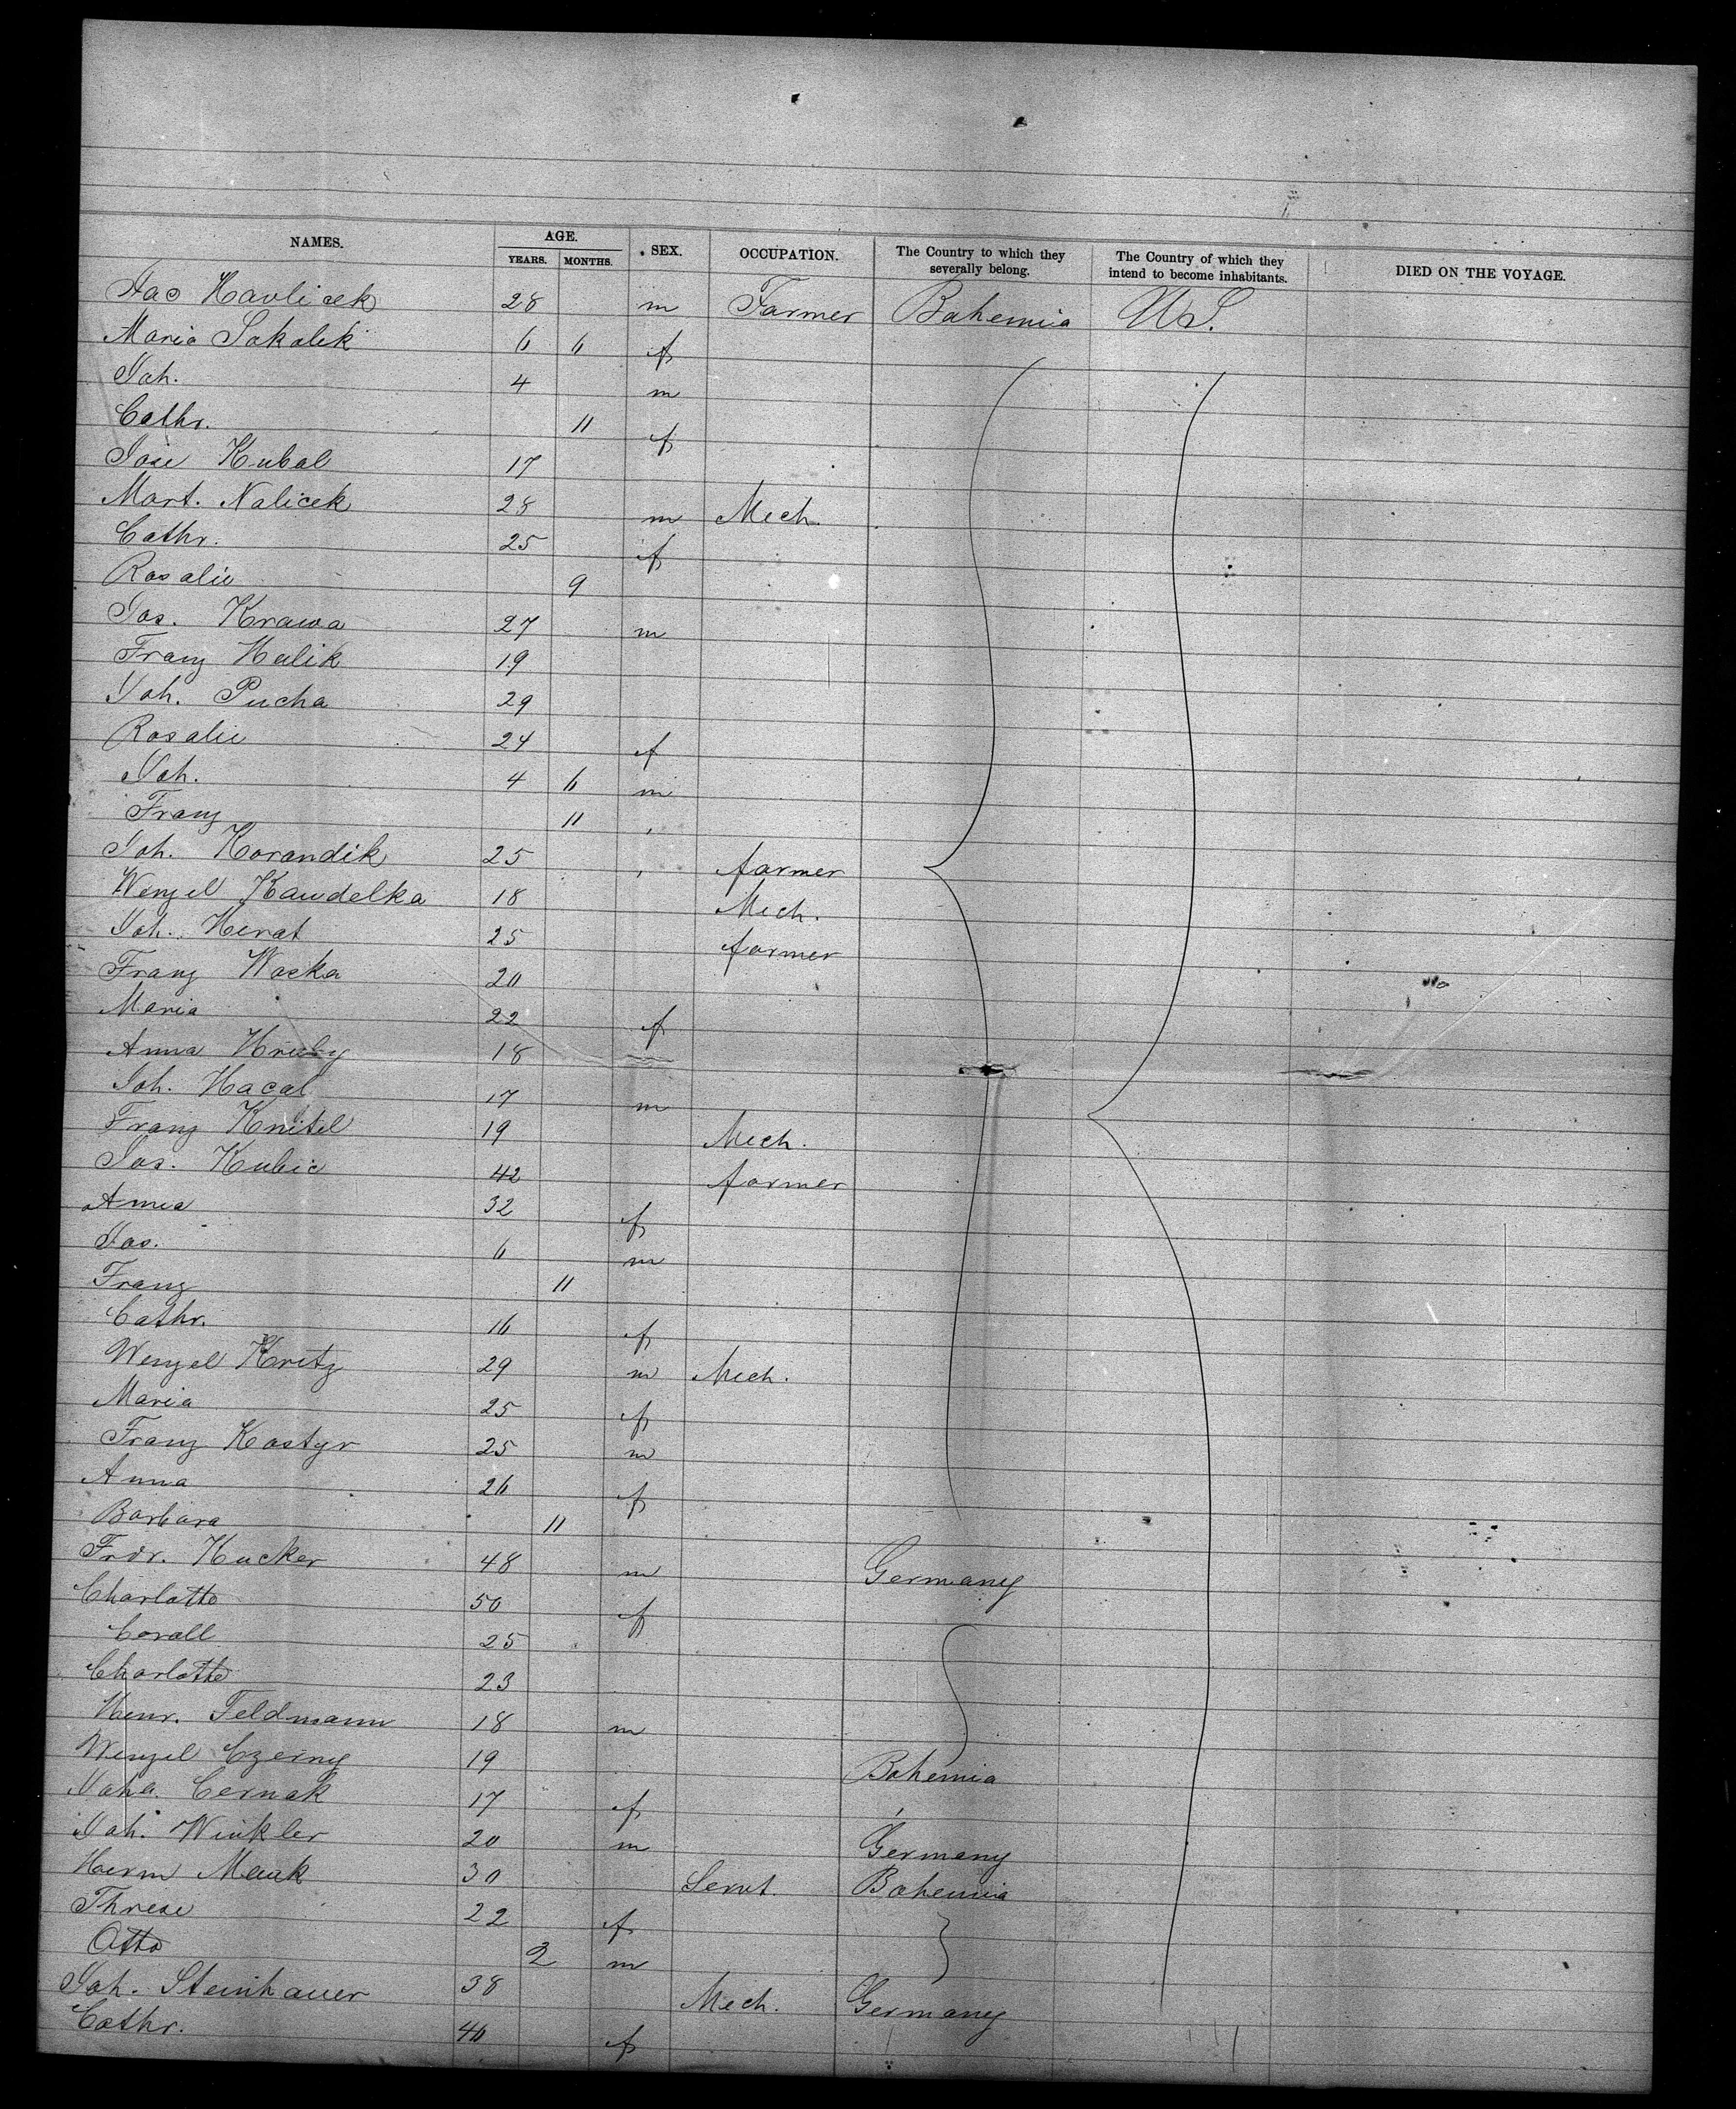 NAMES. AGE. YEARS. MONTHS. SEX. OCCUPATION. The Country to which they severally belong. The Country of which they intend to become inhabitants. DIED ON THE VOYAGE.
Jac Havlicek 28 m Farmer Bohemia US.
Maria Sokalek 6 6 f
Joh. 4 m
Cathr. 11 f
Jose Kubal 17
Mart. Nalicek 28 m Mech.
Cathr. 25 f
Rosalie 9
Jos. Krawa 27 m
Franz Halik 19
Joh. Pucha 29
Rosalie 24 f
Joh. 4 6 m
Franz 11 ,
Joh. Korandik 25 , farmer
Wenzel Kawdelka 18 Mech.
Joh. Herat 25 farmer
Franz Wacka 20
Maria 22 f
Anna Hruby 18
Joh. Hacal 17 m
Franz Knitel 19 Mech.
Jos. Kubic 42 farmer
Anna 32 f
Jos. 6 m
Franz 11
Cathr. 16 f
Wenzel Kretz 29 m Mech.
Maria 25 f
Franz Kostyr 25 m
Anna 26 f
Barbara 11
Frdr. Hucker 48 m Germany
Charlotte 50 f
Corall 25
Charlotte 23
Henr. Feldmann 18 m
Wenzel Czerny 19 Bohemia
Joha. Cernak 17 f ,
Joh. Winkler 20 m Germany
Herm Mauk 30 Servt. Bohemia
Threse 22 f
Otto 2 m
Joh. Steinhauer 38 Mech. Germany
Cathr. 46 f